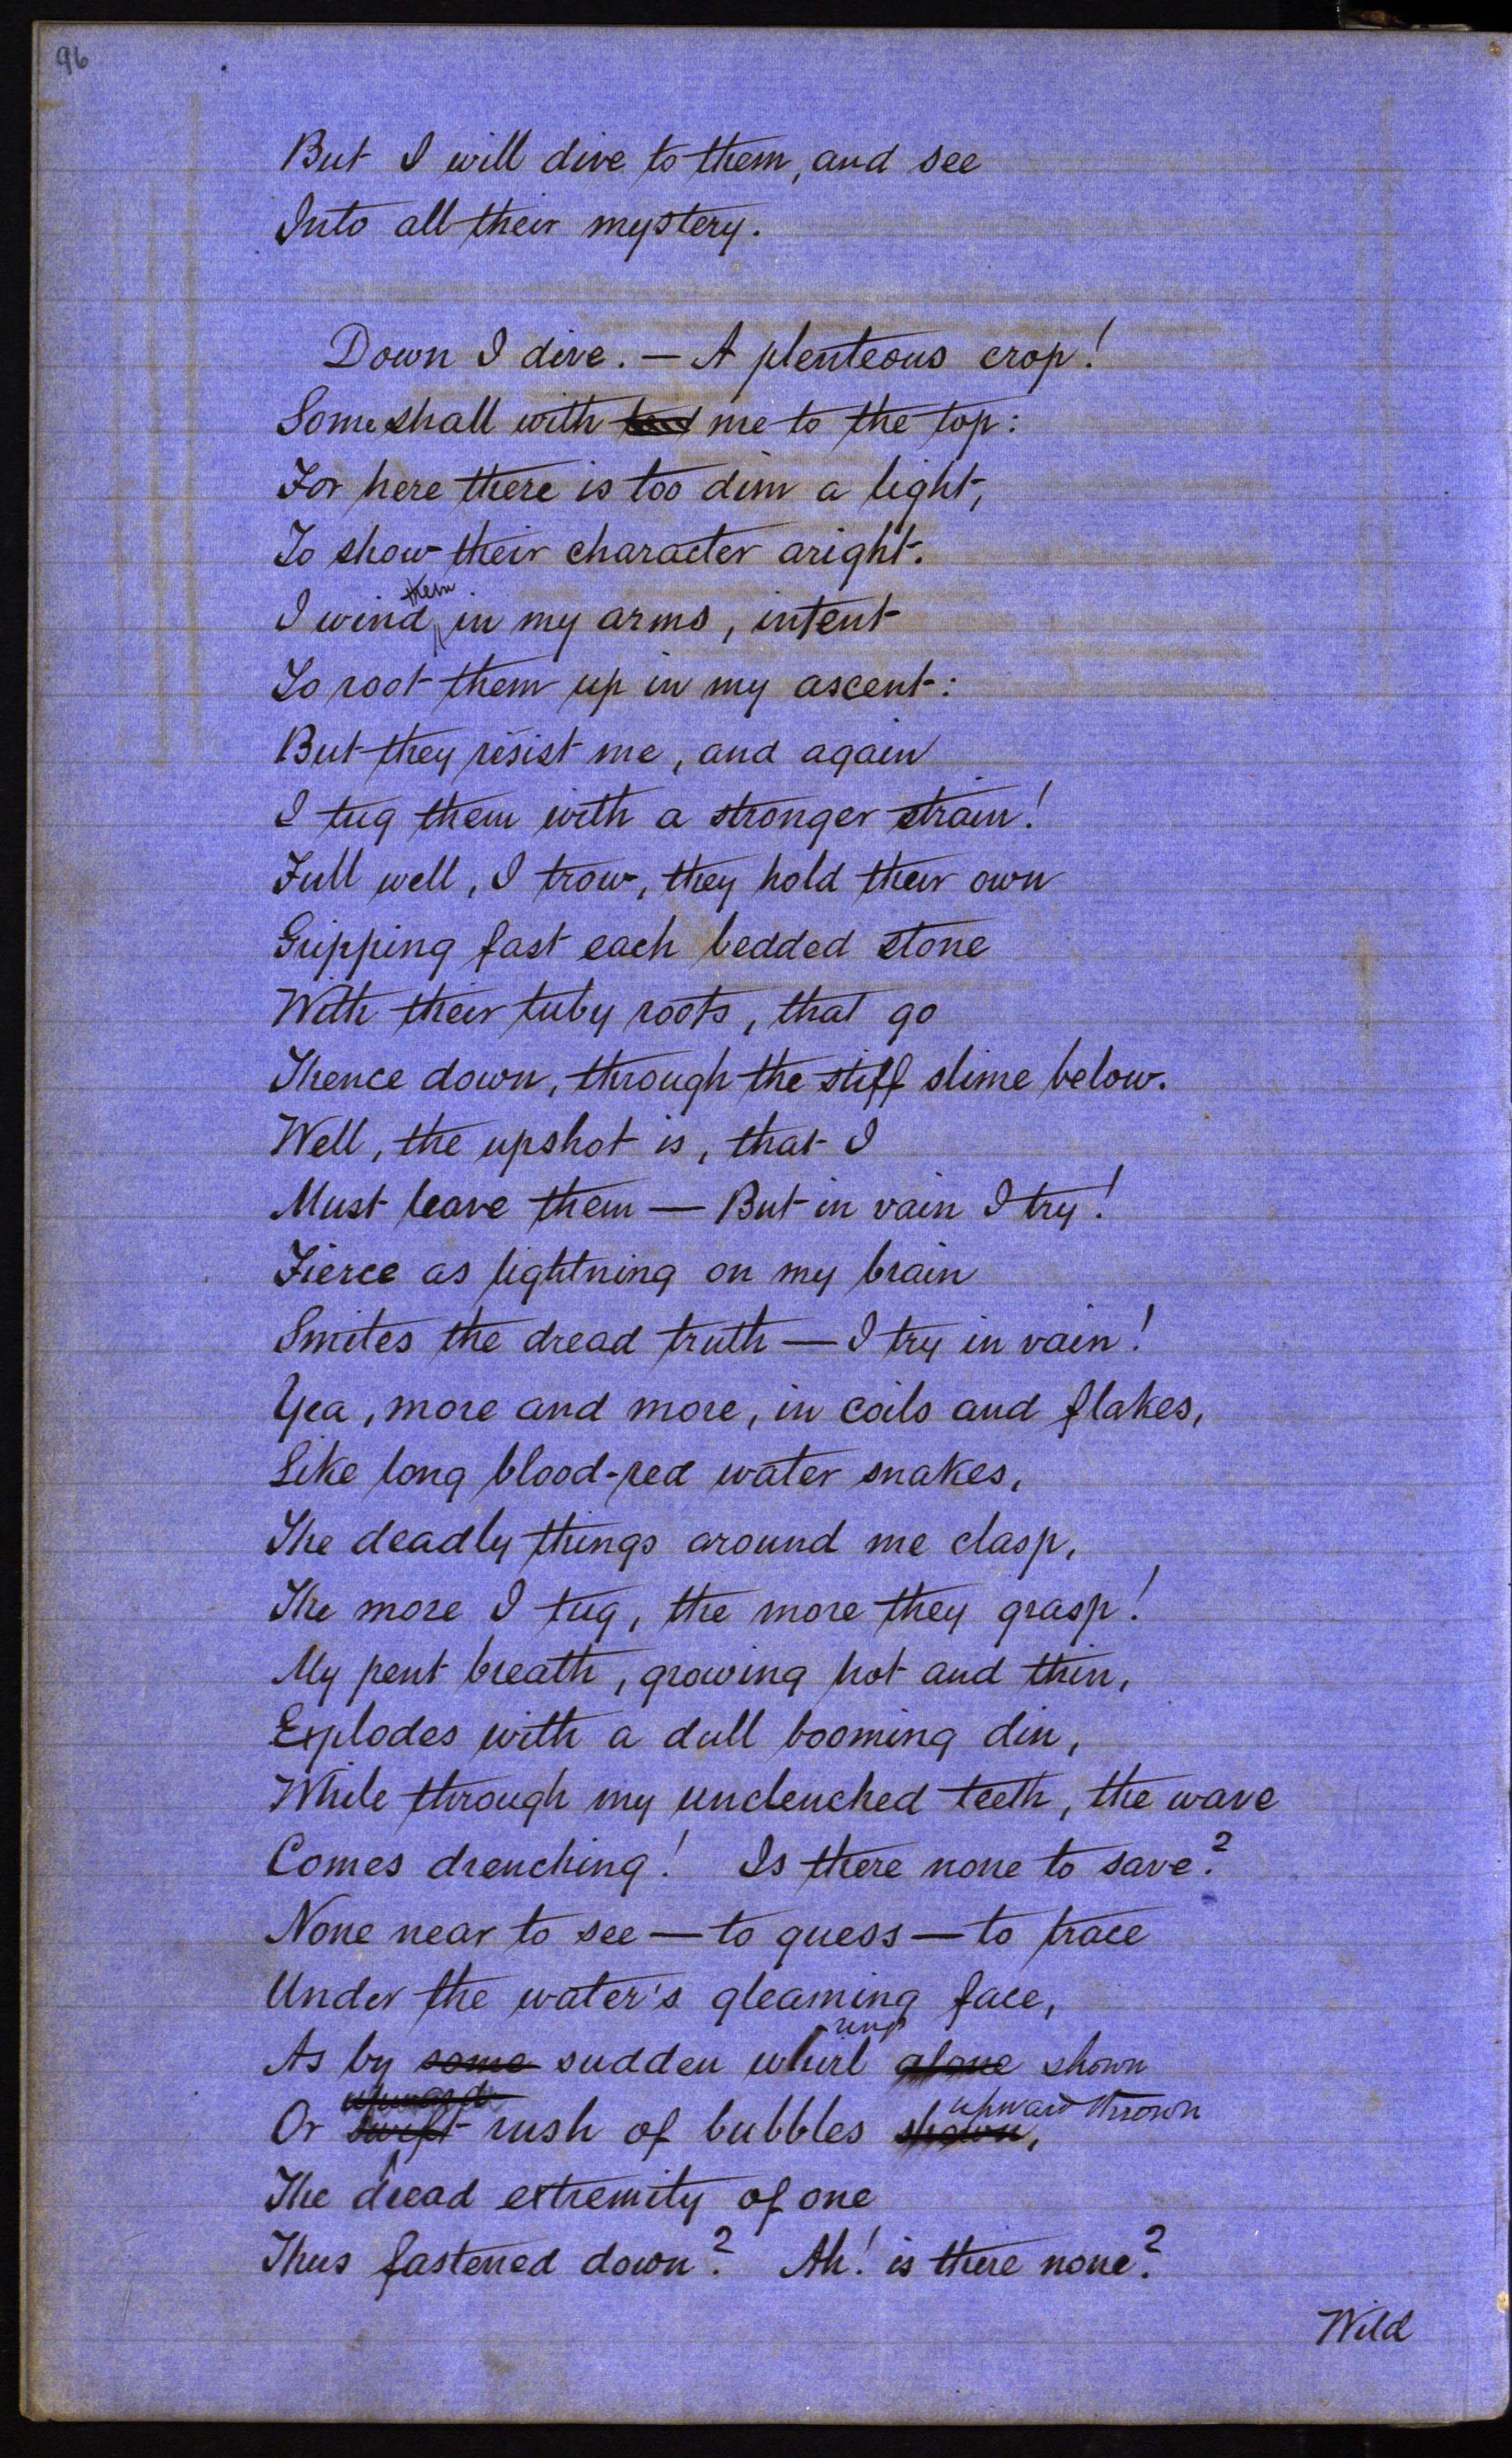 96
But I will dive to them, and see
Into all their mystery.
Down I dive. — A plenteous crop!
Some shall with me to the top:
For here there is too dim a light,
To show their character aright.
them
I wind in my arms, intent
To root them up in my ascent:
But they resist me, and again
I tug them with a stronger strain!
Full well, I trow, they hold their own
Gripping fast each bedded stone
With their tuby roots, that go
Thence down, through the stiff slime below.
Well, the upshot is, that I
Must leave them — But in vain I try!
Fierce as lightning on my brain
Smites the dread truth — I try in vain!
Yea, more and more, in coils and flakes,
Like long blood-red water snakes,
The deadly things around me clasp,
The more I tug, the more they grasp!
My pent breath, growing hot and thin,
Explodes with a dull booming din,
While through my unclenched teeth, the wave
Comes drenching! Is there none to save?
None near to see — to guess — to trace
Under the water's gleaming face,
-ings
As by some sudden whirl alone shown
upward upward thrown
Or swift rush of bubbles shown,
The dread extremity of one
Thus fastened down? Ah! is there none?
Wild